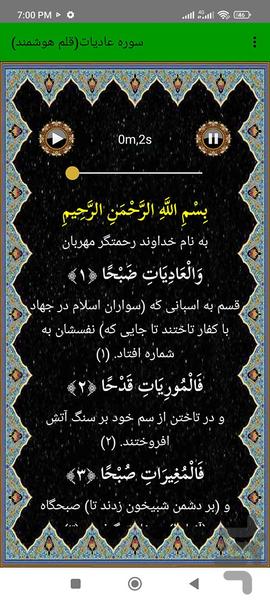 7:00 PM
سوره عادیات(قلم هوشمند)
0m,2s
بِسْمِ اللَّهِ الرَّحْمَنِ الرَّحِيمِ
به نام خداوند رحمتگر مهربان
وَالْعَادِيَاتِ ضَبْحًا ﴿۱﴾
قسم به اسبانی که (سواران اسلام در جهاد
با کفار تاختند تا جایی که) نفسشان به
شماره افتاد. (۱)
فَالْمُورِيَاتِ قَدْحًا ﴿۲﴾
و در تاختن از سم خود بر سنگ آتش
افروختند. (۲)
فَالْمُغِيرَاتِ صُبْحًا ﴿۳﴾
و (بر دشمن شبیخون زدند تا) صبحگاه